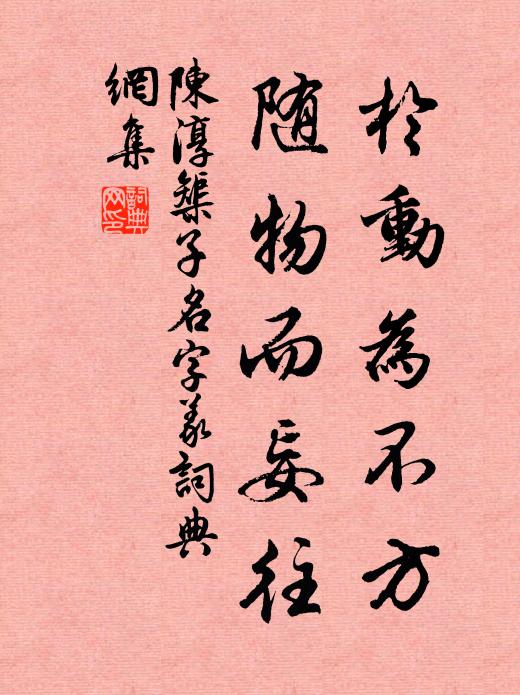 於動為不方
随物而妄往
陳淳榘子名字义詞典
網集
詞典
网印